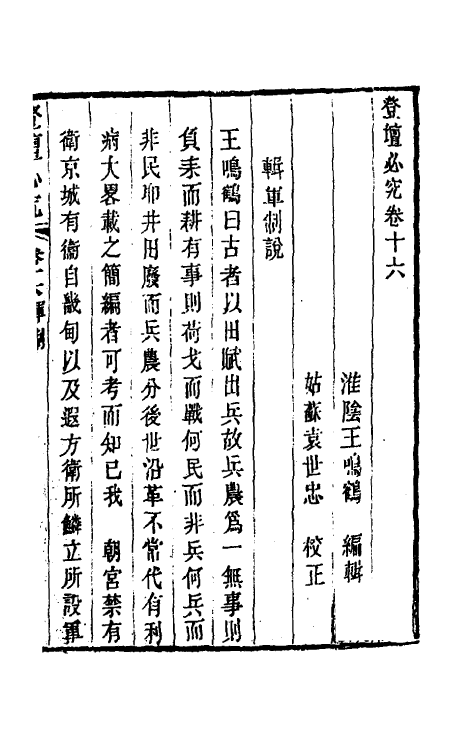 登壇必究卷十六
淮陰王鳴鶴　編輯
姑蘇袁世忠　校正
輯軍制說
王鳴鶴曰古者以田賦出兵故兵農爲一無事則
負耒而耕有事則荷戈而戰何民而非兵何兵而
非民卽井田廢而兵農分後世沿革不常代有利
病大畧載之簡編者可考而知已我　朝宮禁有
衛京城有衛自畿甸以及遐方衛所鱗立所設軍
登壇必究　卷十六軍制